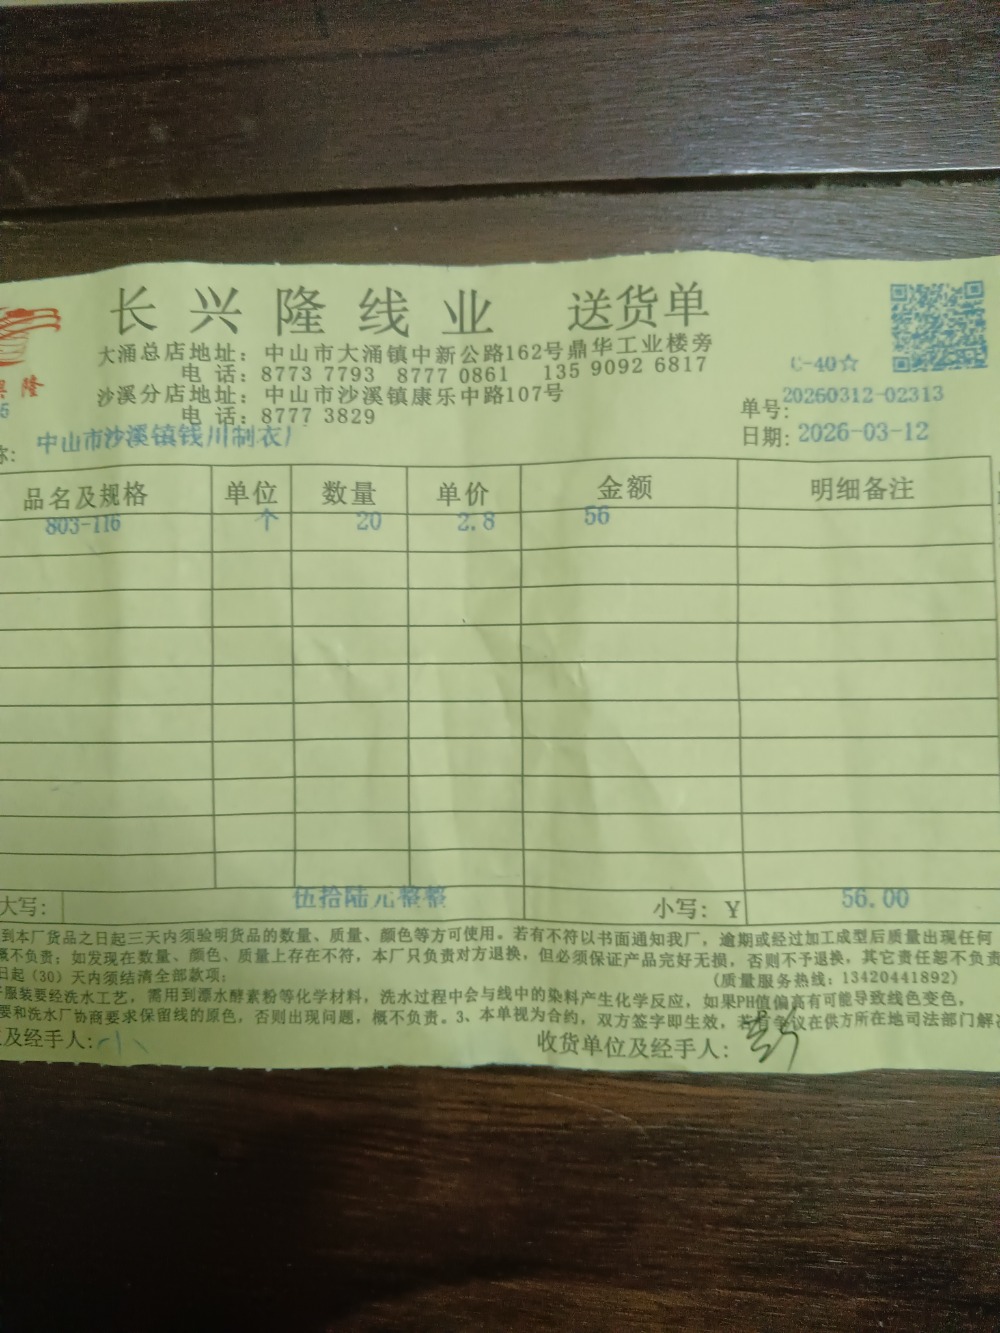 长兴隆线业 送货单
大涌总店地址：中山市大涌镇中新公路162号鼎华工业楼旁
电 话：8773 7793 8777 0861 135 9092 6817
C-40☆
沙溪分店地址：中山市沙溪镇康乐中路107号
隆
单号：20260312-02313
电 话：8777 3829
5
日期：2026-03-12
称：中山市沙溪镇钱川制衣厂
品名及规格 单位 数量 单价 金额 明细备注
803-116 个 20 2.8 56
大写： 伍拾陆元整整 小写：￥ 56.00
到本厂货品之日起三天内须验明货品的数量、质量、颜色等方可使用。若有不符以书面通知我厂，逾期或经过加工成型后质量出现任何
概不负责；如发现在数量、颜色、质量上存在不符，本厂只负责对方退换，但必须保证产品完好无损，否则不予退换，其它责任恕不负责
日起（30）天内须结清全部款项；	（质量服务热线：13420441892）
服装要经洗水工艺，需用到漂水酵素粉等化学材料，洗水过程中会与线中的染料产生化学反应，如果PH值偏高有可能导致线色变色，
要和洗水厂协商要求保留线的原色，否则出现问题，概不负责。3、本单视为合约，双方签字即生效，若有争议在供方所在地司法部门解决
及经手人： 收货单位及经手人：